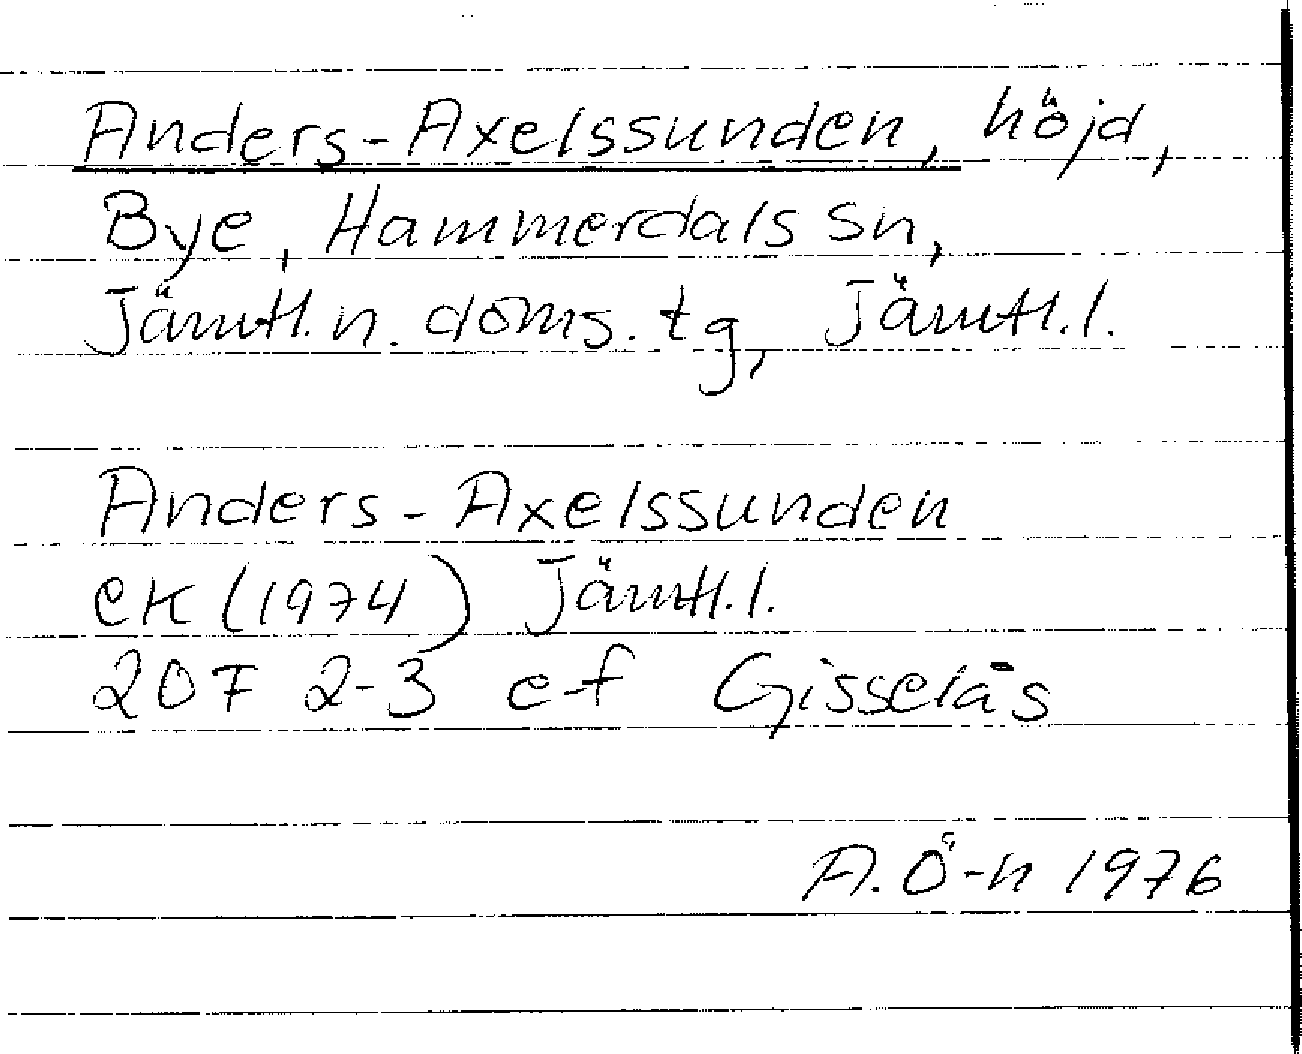 Anders-Axelssunden, höjd,
Bye, Hammerdals sn,
Jämtl. n. doms. tg, Jämtl. l.
Anders-Axelssunden
ek (1974) Jämtl. l.
20F 2-3 e-f Gisselås
A. Ö-n 1976